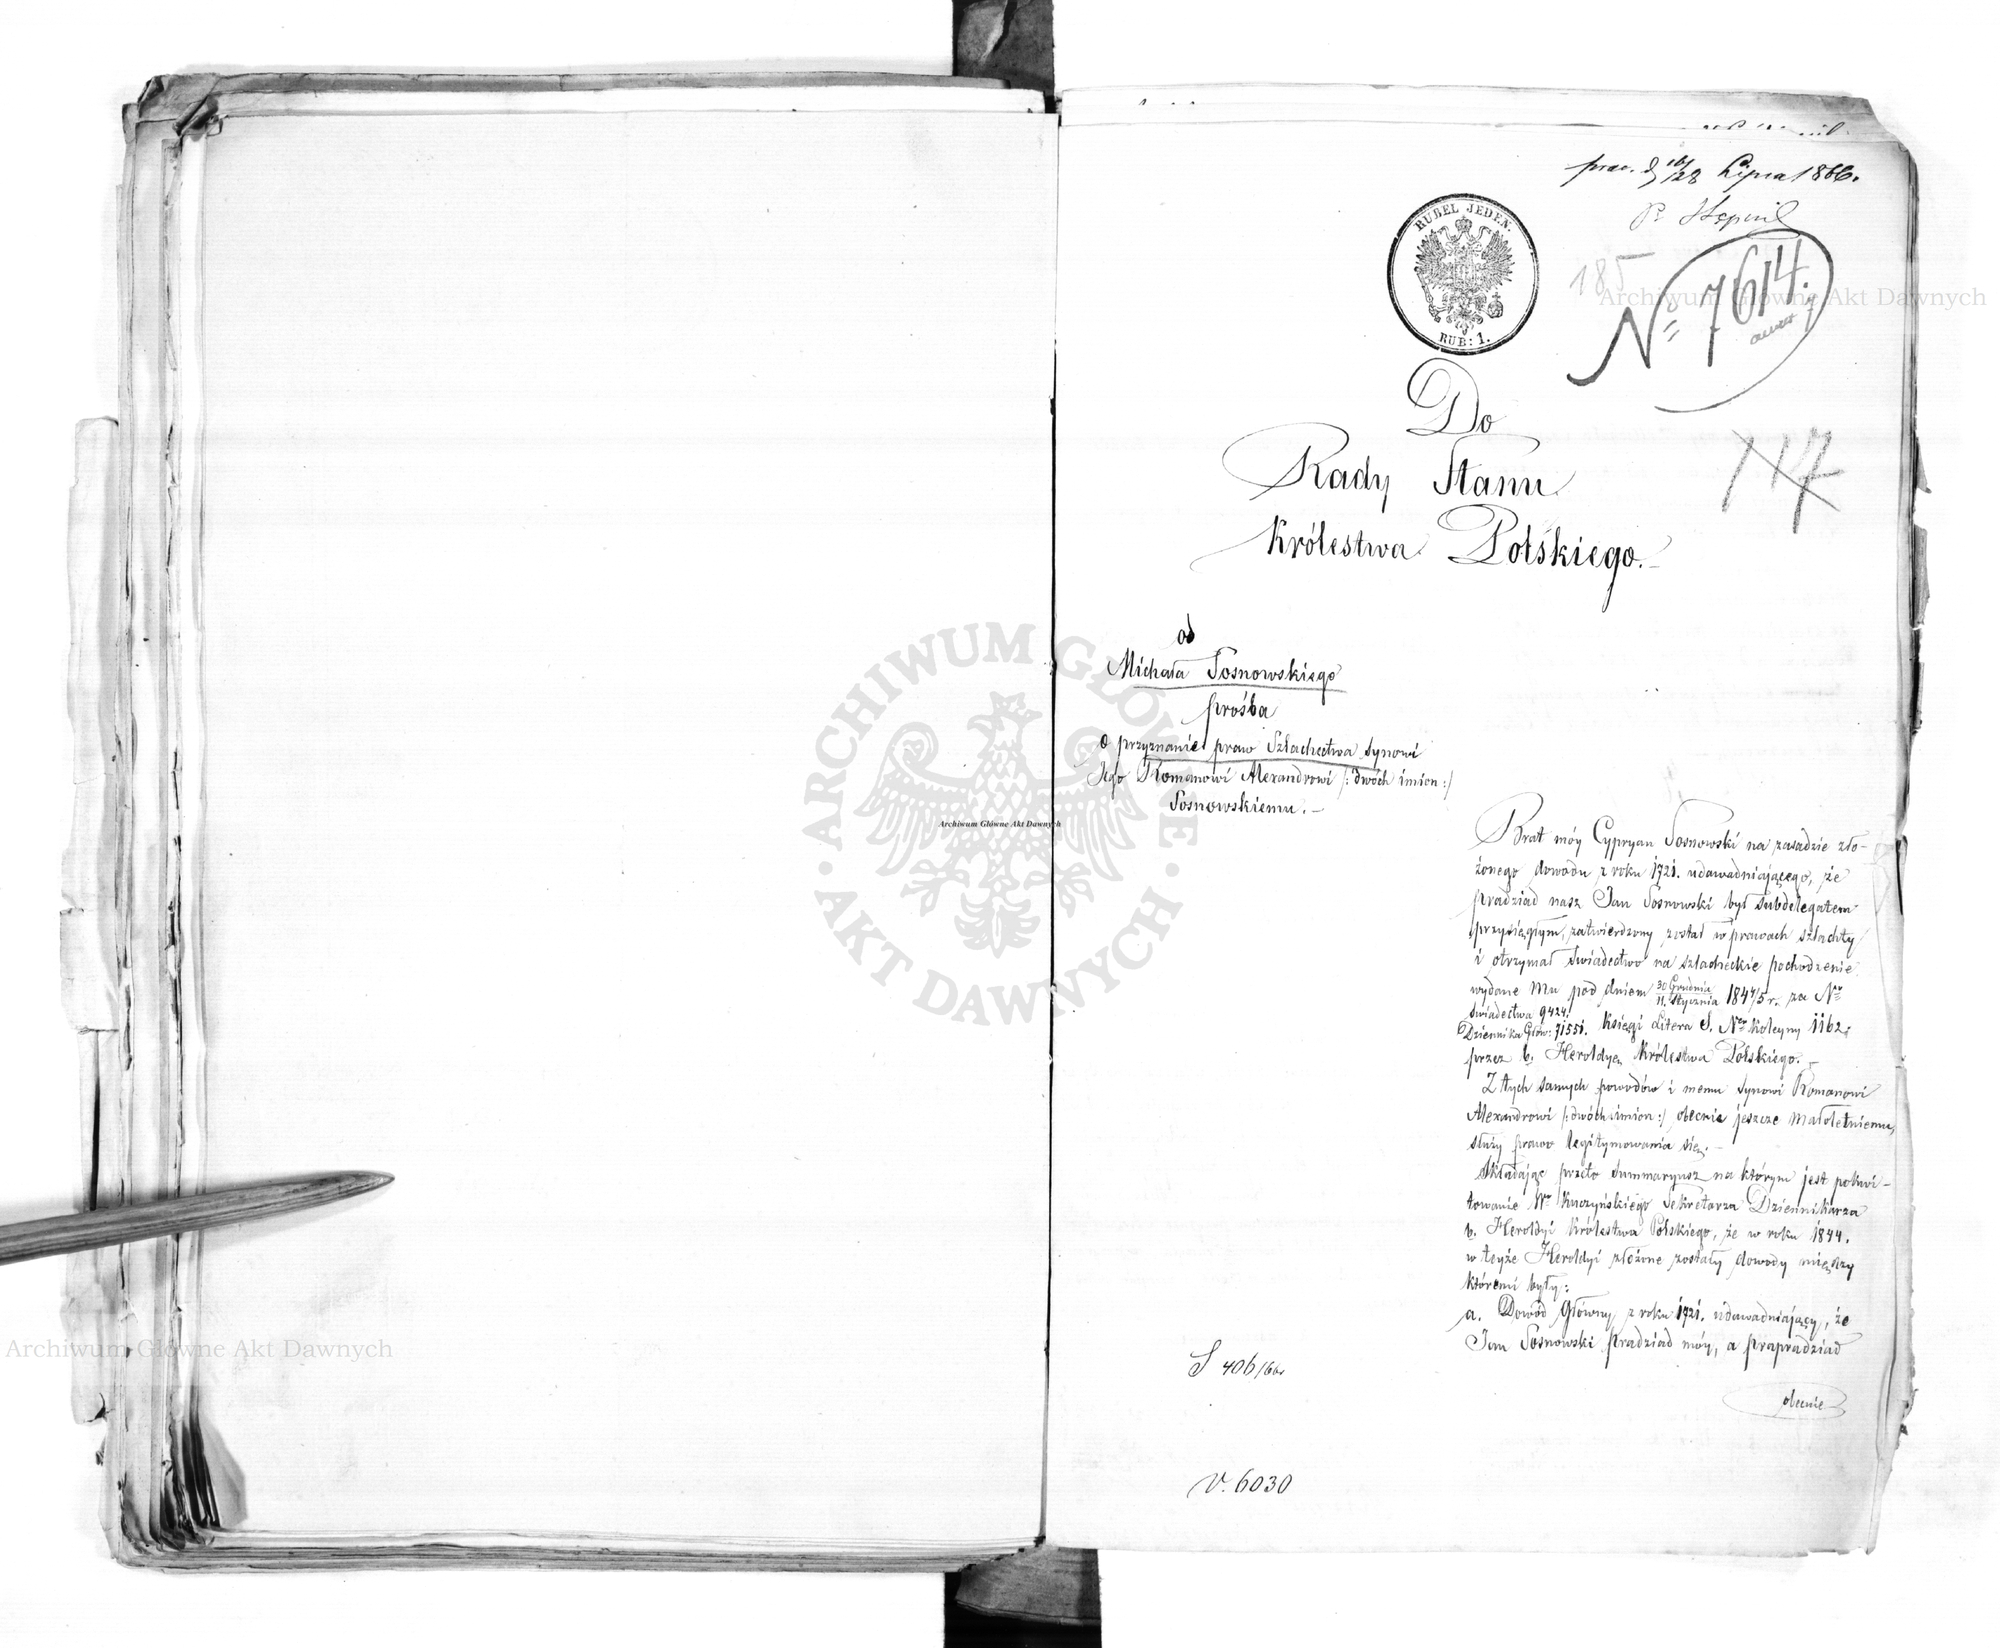 16/28 Lipca 1866.
RUBEL JEDEN.
RUB: 1.
185
No 7614.
117
Do
Rady Stanu
Królestwa Polskiego.—
od
Michała Sosnowskiego
prośba
o przyznanie praw Szlachectwa synowi
Jego Romanowi Alexandrowi /:dwóch imion:/
Sosnowskiemu.—
Brat móy Cypryan Sosnowski na zasadzie zło-
żonego dowodu z roku 1721. udawadniającego, że
pradziad nasz Jan Sosnowski był Subdelegatem
przysięgłym, zatwierdzony został w prawach szlachty
i otrzymał Świadectwo na szlacheckie pochodzenie
wydane Mu pod dniem 30 Grudnia/11. Stycznia 1844/5 r. za Nr
Świadectwa 9424.
Dziennika Głów: 71551. Księgi Litera S. Ner koleyny 1162.
przez b. Heroldyę Królestwa Polskiego.—
Z tych samych powodów i memu synowi Romanowi
Alexandrowi /:dwóch imion:/ obecnie jeszcze małoletniemu,
służy prawo legitymowania się.—
Składając przeto Summaryusz na którym jest pokwi-
towanie Wo Kuczyńskiego Sekretarza Dziennikarza
b. Heroldyi Królestwa Polskiego, że w roku 1844.
w teyże Heroldyi złożone zostały dowody między
któremi były:
a. Dowód Główny z roku 1721. udawadniający, że
Jan Sosnowski pradziad móy, a prapradziad
obecnie
S 406/66r
V. 6030
ARCHIWUM GŁÓWNE AKT DAWNYCH
Archiwum Główne Akt Dawnych
Archiwum Główne Akt Dawnych
Archiwum Główne Akt Dawnych